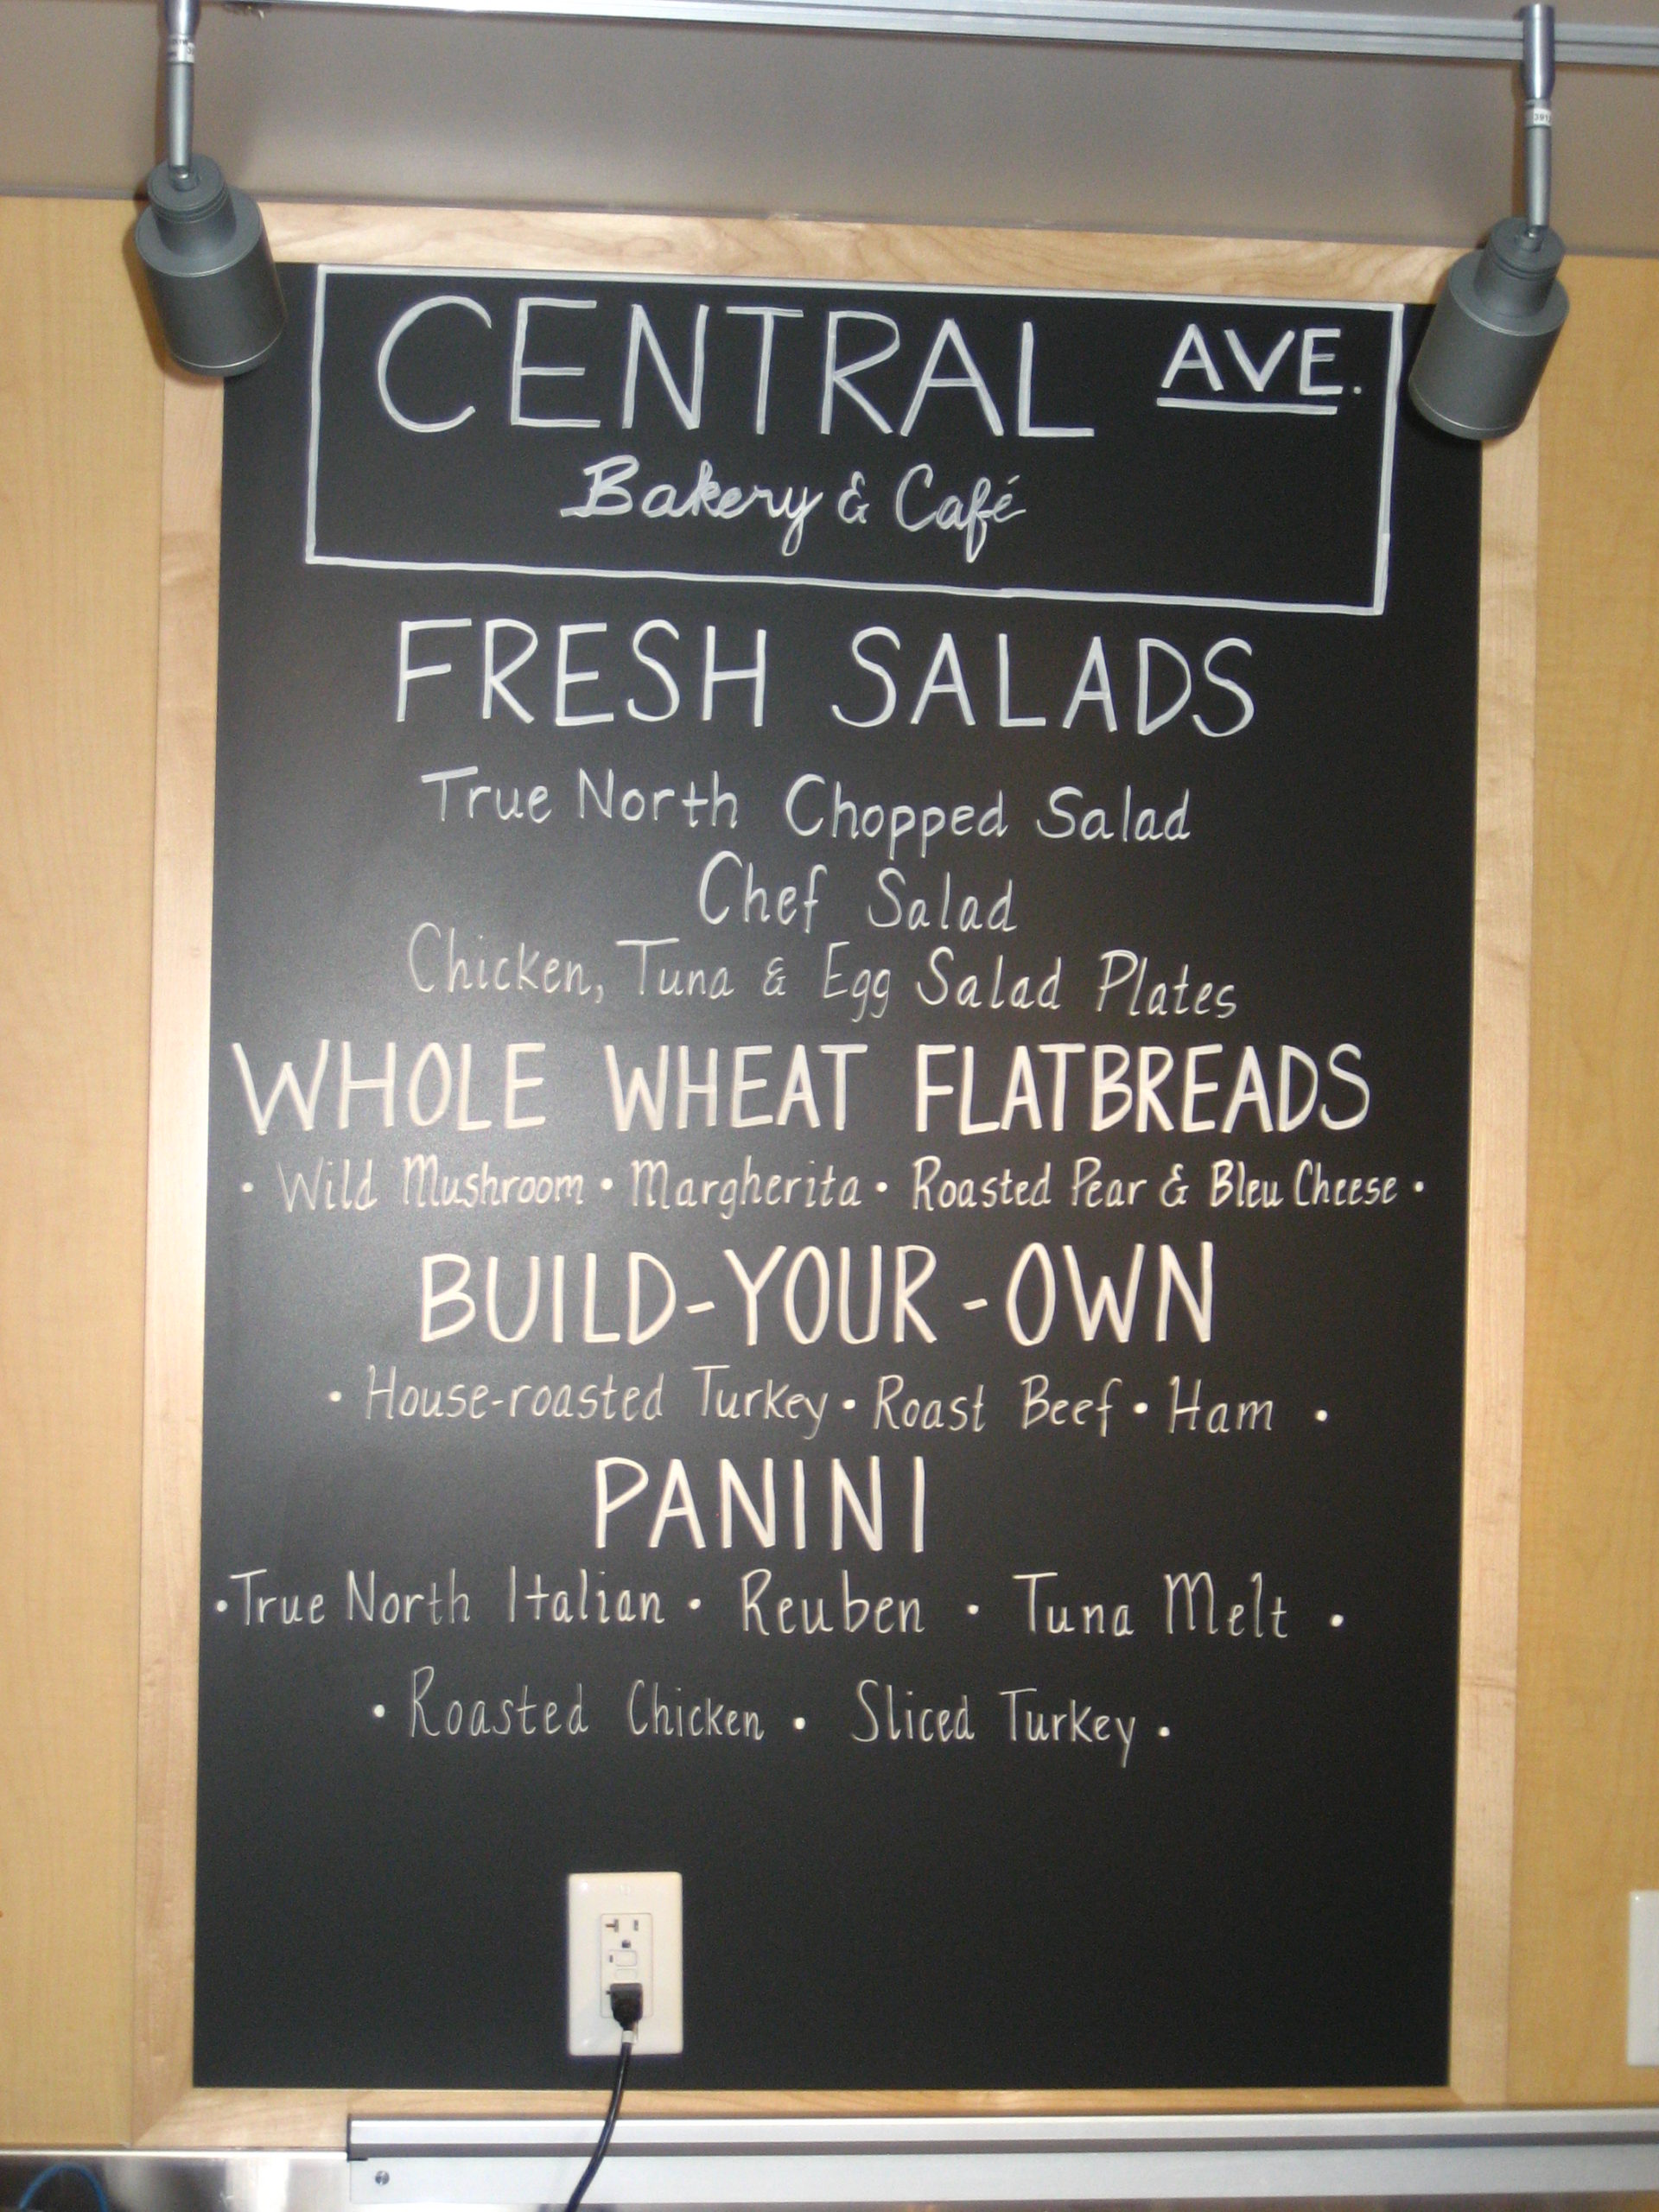 CENTRAL AVE.
Bakery & Café
FRESH SALADS
True North Chopped Salad
Chef Salad
Chicken, Tuna & Egg Salad Plates
WHOLE WHEAT FLATBREADS
• Wild Mushroom • Margherita • Roasted Pear & Bleu Cheese •
BUILD-YOUR-OWN
• House-roasted Turkey • Roast Beef • Ham •
PANINI
• True North Italian • Reuben • Tuna Melt •
• Roasted Chicken • Sliced Turkey •